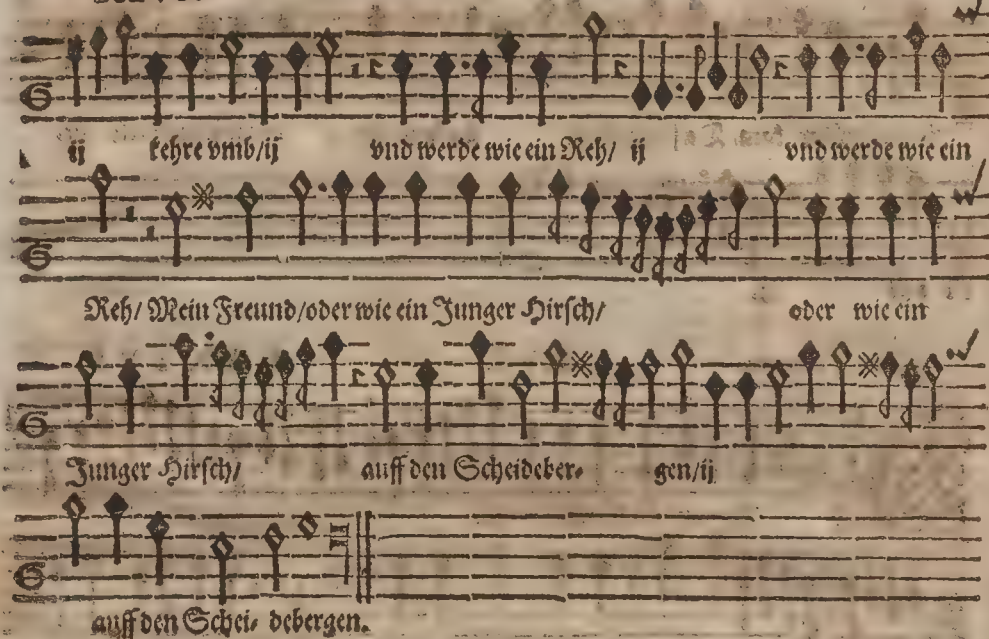 ij kehre vmb/ij vnd werde wie ein Reh/ ij vnd werde wie ein
Reh/ Mein Freund/oder wie ein Junger Hirsch/ oder wie ein
Junger Hirsch/ auff den Scheideber- gen/ij
auff den Schei- debergen.